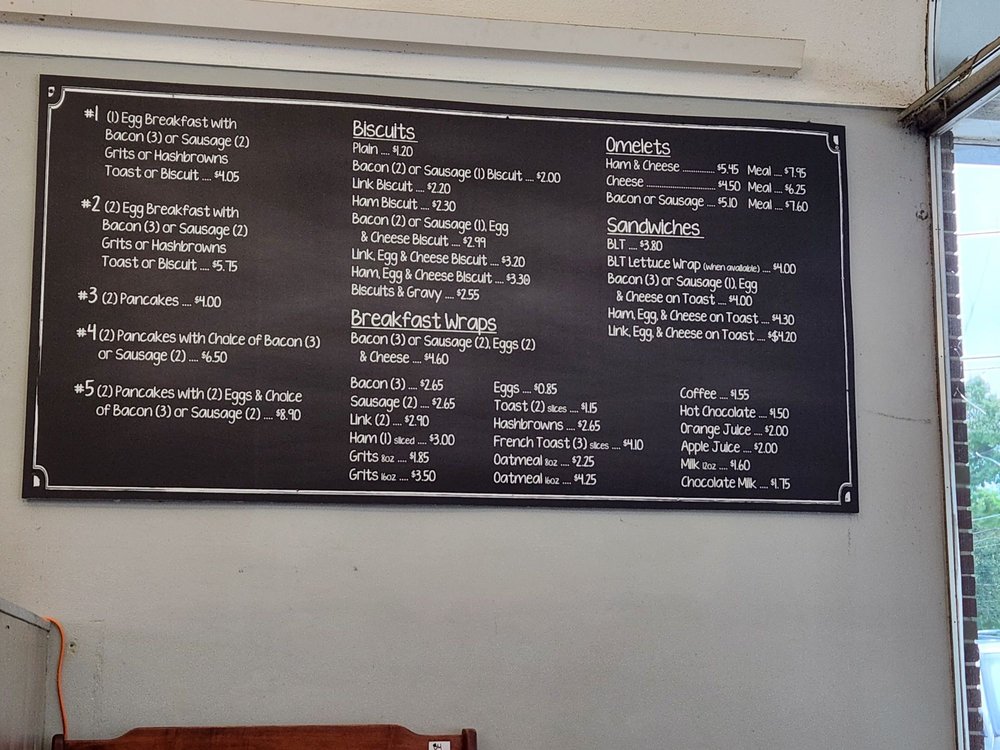 #1 (1) Egg Breakfast with
Bacon (3) or Sausage (2)
Grits or Hashbrowns
Toast or Biscuit .... $4.05
#2 (2) Egg Breakfast with
Bacon (3) or Sausage (2)
Grits or Hashbrowns
Toast or Biscuit .... $5.75
#3 (2) Pancakes .... $4.00
#4 (2) Pancakes with Choice of Bacon (3)
or Sausage (2) .... $6.50
#5 (2) Pancakes with (2) Eggs & Choice
of Bacon (3) or Sausage (2) .... $8.90
Biscuits
Plain .... $1.20
Bacon (2) or Sausage (1) Biscuit .... $2.00
Link Biscuit .... $2.20
Ham Biscuit .... $2.30
Bacon (2) or Sausage (1), Egg
& Cheese Biscuit .... $2.99
Link, Egg & Cheese Biscuit .... $3.20
Ham, Egg & Cheese Biscuit .... $3.30
Biscuits & Gravy .... $2.55
Breakfast Wraps
Bacon (3) or Sausage (2), Eggs (2)
& Cheese .... $4.60
Bacon (3) .... $2.65
Sausage (2) .... $2.65
Link (2) .... $2.90
Ham (1) sliced .... $3.00
Grits 8oz .... $1.85
Grits 16oz .... $3.50
Eggs .... $0.85
Toast (2) slices .... $1.15
Hashbrowns .... $2.65
French Toast (3) slices .... $4.10
Oatmeal 8oz .... $2.25
Oatmeal 16oz .... $4.25
Omelets
Ham & Cheese .............. $5.45 Meal .... $7.95
Cheese .............................. $4.50 Meal .... $6.25
Bacon or Sausage .... $5.10 Meal .... $7.60
Sandwiches
BLT .... $3.80
BLT Lettuce Wrap (when available) .... $4.00
Bacon (3) or Sausage (1), Egg
& Cheese on Toast .... $4.00
Ham, Egg, & Cheese on Toast .... $4.30
Link, Egg, & Cheese on Toast .... $$4.20
Coffee .... $1.55
Hot Chocolate .... $1.50
Orange Juice .... $2.00
Apple Juice .... $2.00
Milk 12oz .... $1.60
Chocolate Milk .... $1.75